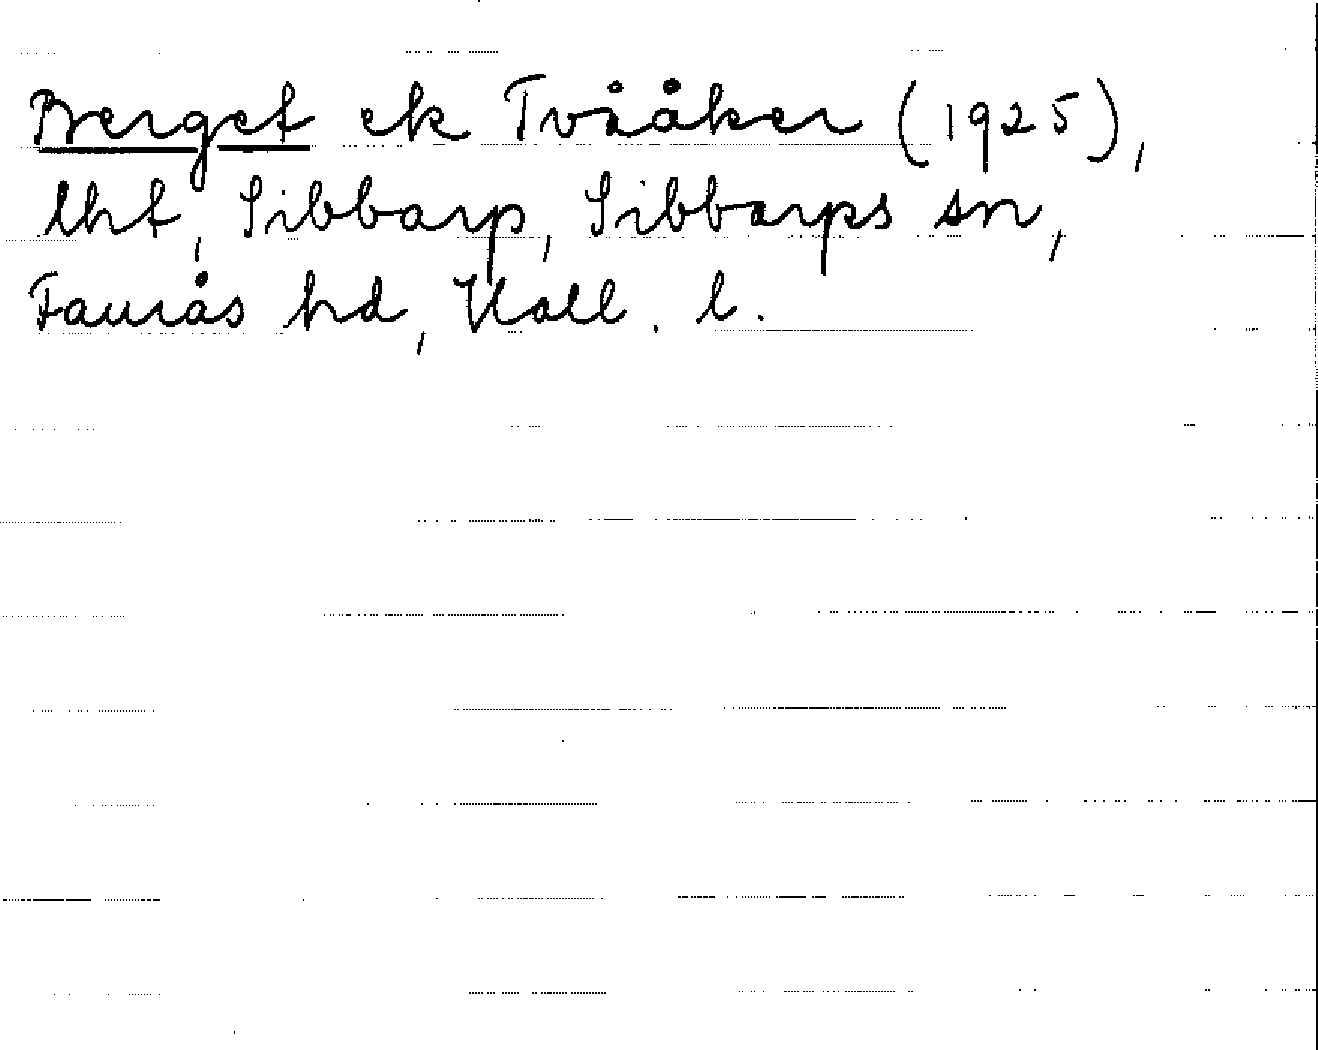 Berget ek Tvååker (1925),
lht, Sibbarp, Sibbarps sn,
Faurås hd, Hall. l.